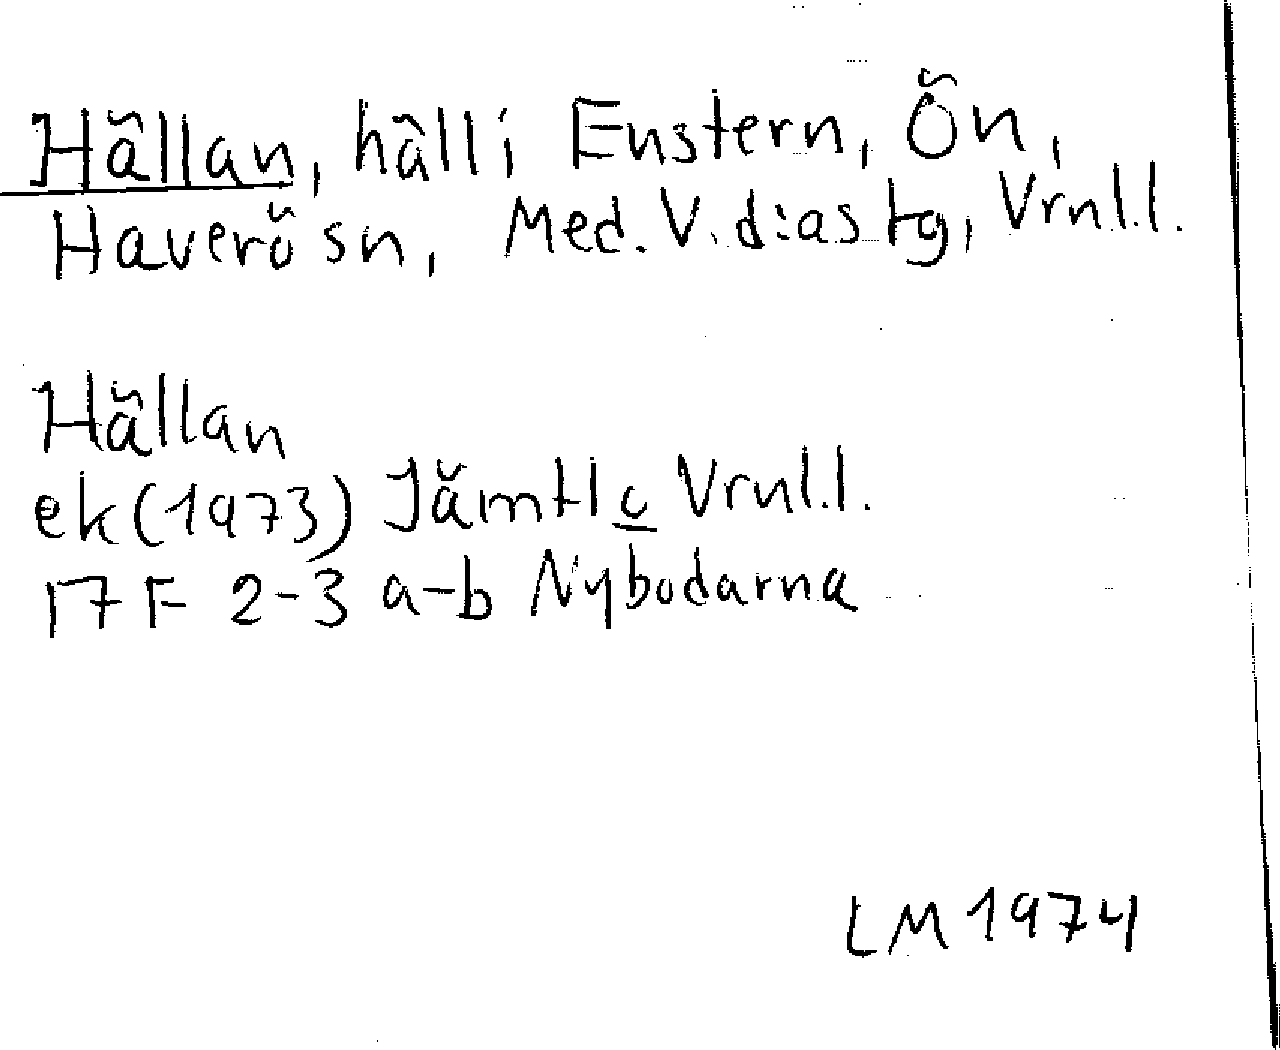 Hällan, häll i Enstern, Ön,
Haverö sn, Med. V. diastg, Vrnl.l.
Hällan
ek (1973) Jämtl c Vrnl.l.
17 F 2-3 a-b Nybodarna
LM 1974